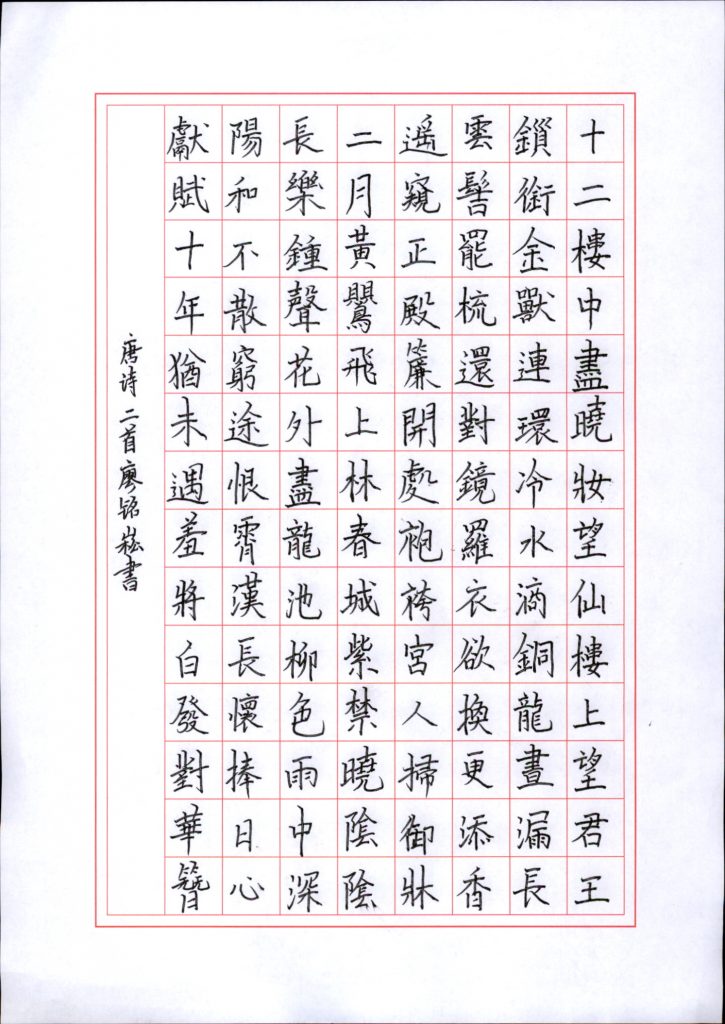 十二樓中盡曉妝望仙樓上望君王
鎖銜金獸連環冷水滴銅龍晝漏長
雲髻罷梳還對鏡羅衣欲換更添香
遥窺正殿簾開處袍袴宮人掃御牀
二月黃鸎飛上林春城紫禁曉陰陰
長樂鍾聲花外盡龍池柳色雨中深
陽和不散窮途恨霄漢長懷捧日心
獻賦十年猶未遇羞將白發對華簪
唐诗二首廖铭崧書